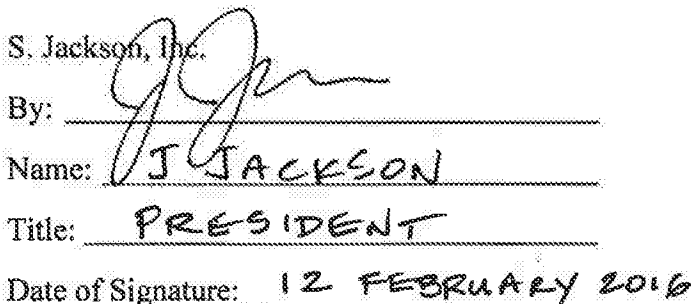 S. Jackson, Inc.
By:
Name: J JACKSON
Title: PRESIDENT
Date of Signature: 12 FEBRUARY 2016